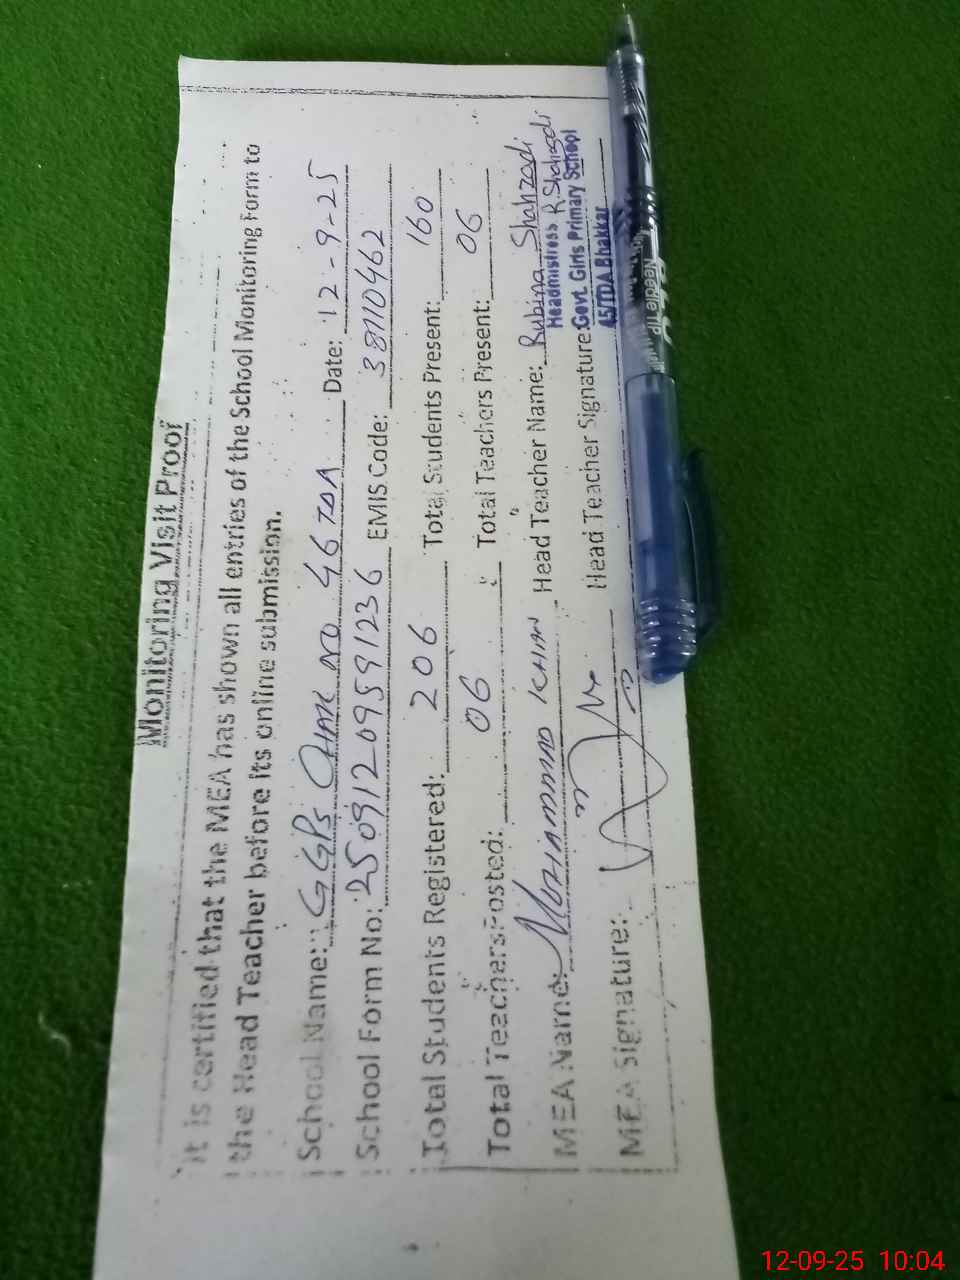 Monitoring Visit Proof
It is certified that the MEA has shown all entries of the School Monitoring Form to
the Head Teacher before its online submission.
School Name: GGPS CHAK NO 46 TDA Date: 12-9-25
School Form No: 25091209591236 EMIS Code: 38110462
Total Students Registered: 206 Total Students Present: 160
Total Teachers Posted: 06 Total Teachers Present: 06
MEA Name: MUHAMMAD KHAN Head Teacher Name: Rubina Shahzadi
MEA Signature: Head Teacher Signature: R. Shahzadi
Headmistress
Govt. Girls Primary School
45/TDA Bhakkar
Needle Tip
12-09-25 10:04